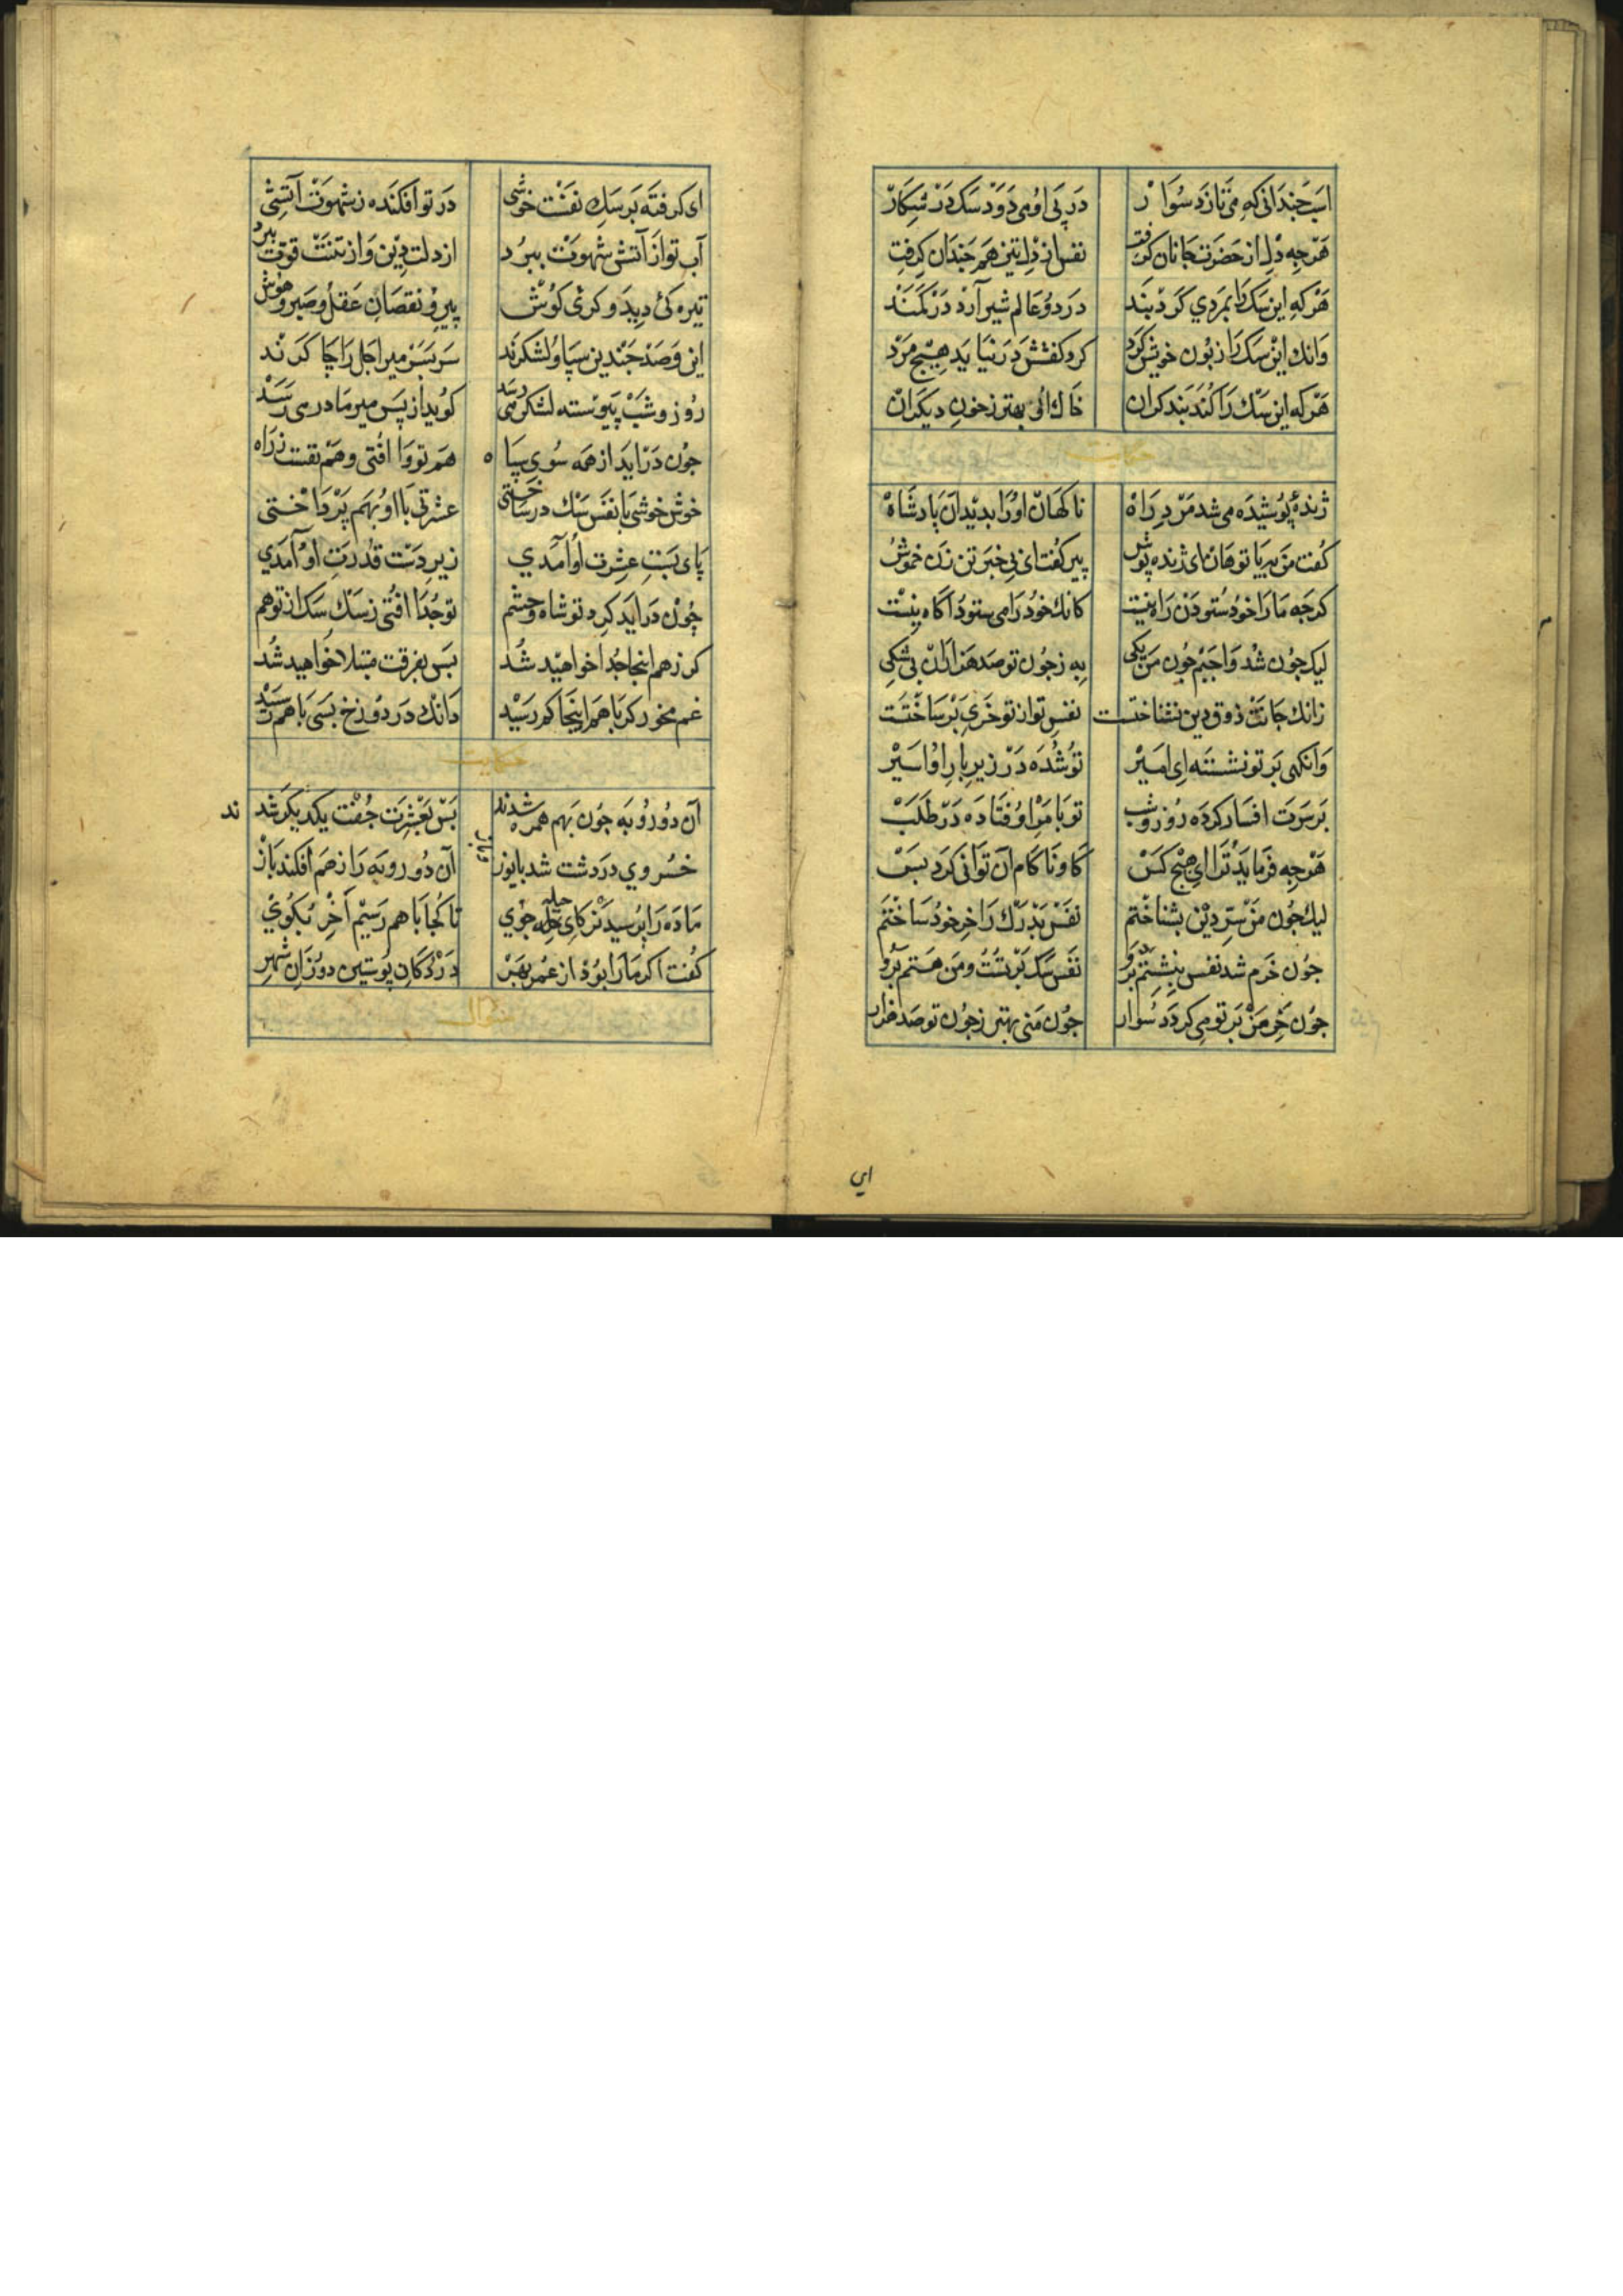 اسب جندانی که می تازد سوار در پی او می دود سک در شکار
هرجه دل از حضرت جانان کرفت نفس از دل نیز هم جندان کرفت
هرکه این سک را بمردی کرد بند در دو عالم شیر آرد در کمند
وانك این سک را زبون خویش کرد کرد کفشش در نیابد هیچ مرد
هرکه این سك را کند بند کران خاك او بهتر زخون دیکران
حکایت
ژندۀ پوشیده می شد مرد راه ناکهان او را بدید آن بادشاه
کفت من به یا تو هان ای ژنده پوش پیر کفت ای بی خبر تن زن خموش
کرجه ما را خود ستودن راه نیست کانك خود را می ستود آکاه نیست
لیك جون شد واجبم جون من یکی به زجون تو صد هزاران بی شکی
زانك جانت ذوق دین نشناختست نفس تو از تو خری بر ساختست
وانکهی بر تو نشسته ای امیر تو شده در زیر بار او اسیر
بر سرت افسار کرده روز و شب تو بامر او فتاده در طلب
هرجه فرماید ترا ای هیج کس کام و ناکام آن توانی کرد بس
لیك جون من سر دین بشناختم نفس بدرك را خر خود ساختم
جون خرم شد نفس بنشستم برو نفس سک بر تست و من هستم برو
جون خر من بر تو می کردد سوار جون منی بهتر زجون تو صد هزار
ای
ای کرفته بر سك نفست خوشی در تو افکنده زشهوت آتشی
آب تو از آتش شهوت ببرد از دلت دین و از تنت قوت ببرد
تیره کی دید و کری کوش پیر و نقصان عقل و صبر و هوش
این و صد جندین سپاه و لشکرند سربسر میر اجل را چاکرند
روز و شب پیوسته لشکر می رسد کوید از پس میر ما در می رسد
جون دراید از همه سوی سپاه هم تو وا افتی و هم نفست زراه
خوش خوشی با نفس سك در ساختی عشرتی با او بهم پرداختی
پای بست عشرت او آمدی زیر دست قدرت او آمدی
چون دراید کرد تو شاه و حشم تو جدا افتی زسك سک از تو هم
کر زهم اینجا جدا خواهید شد بس بفرقت مبتلا خواهید شد
غم مخور کر با هم اینجا کم رسید دانك در دوزخ بسی با هم رسید
حکایت
آن دو روبه جون بهم همره شدند بس بعشرت جفت یکدیکر شدند
خسروی در دشت شد با یوز و باز آن دو روبه را زهم افکند باز
ماده را پرسید نر کای حیله جوی تا کجا با هم رسیم آخر بکوی
کفت اکر ما را بود از عمر بهر در دکان پوستین دوزان شهر